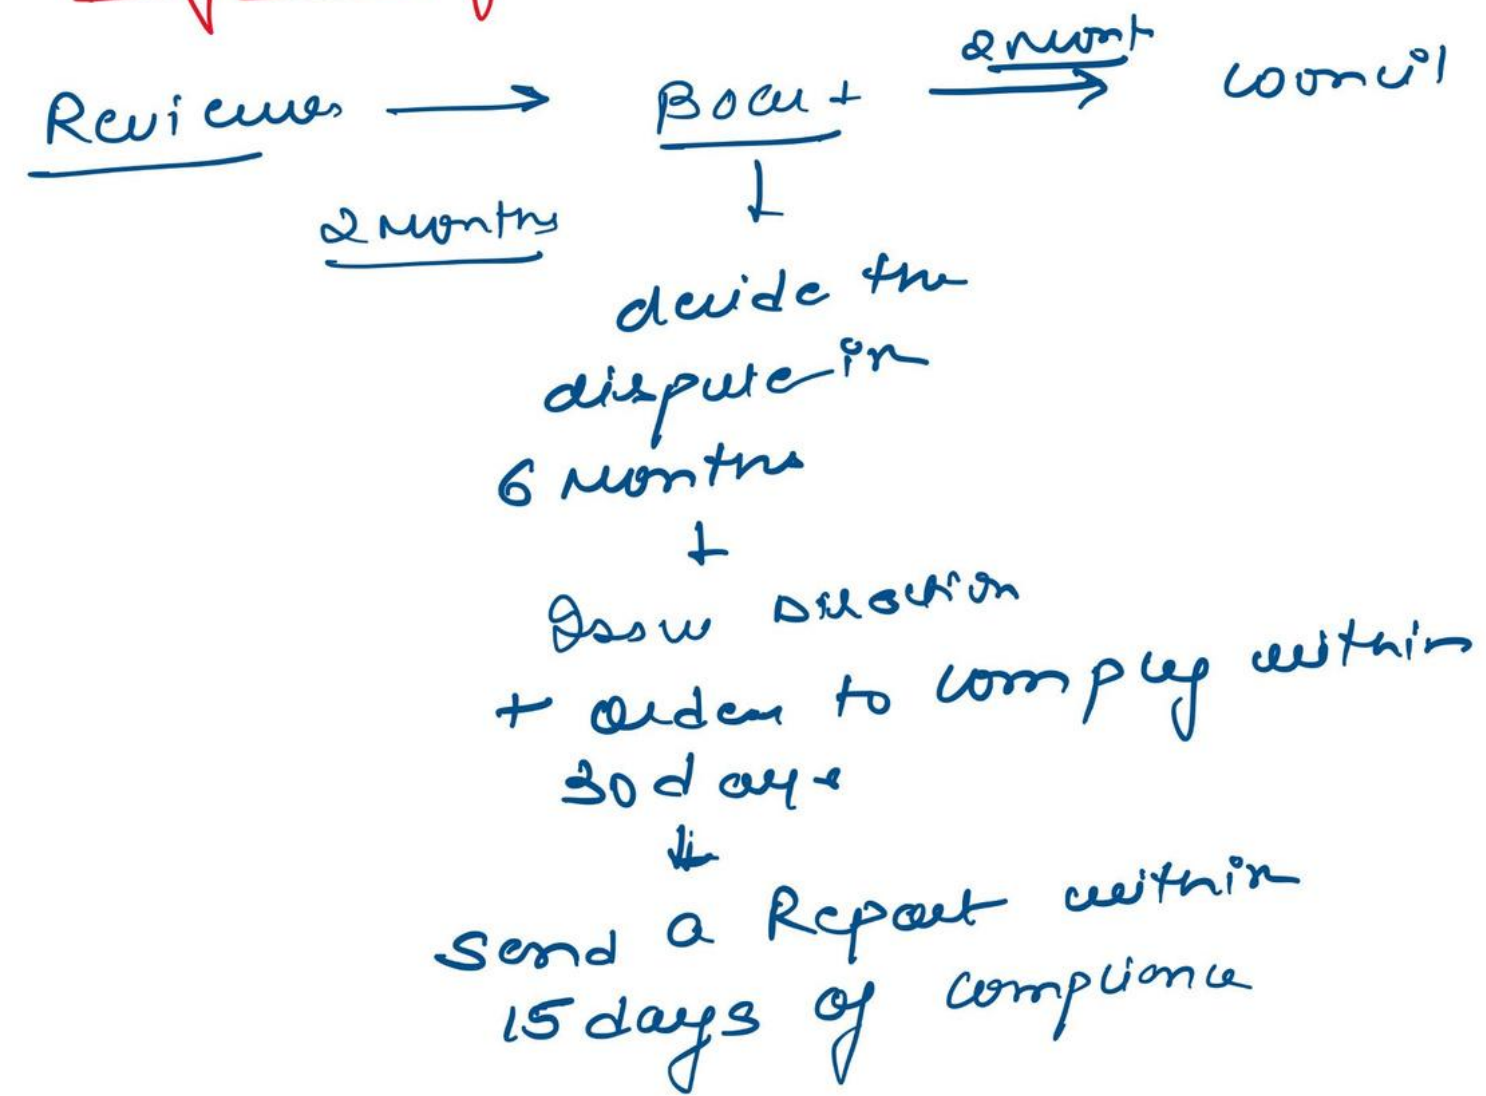 Reviewes → Board 2 Mont → council
2 Months
↓
decide the
dispute in
6 Months
↓
Issue Direction
+ order to comply within
30 days
↓
Send a Report within
15 days of compliance